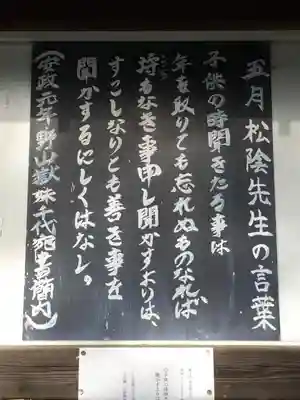 五月 松陰先生の言葉
子供の時聞きたる事は
年を取りても忘れぬものなれば
埒もなき事申し聞かすよりは、
すこしなりとも善き事を
聞かするにしくはなし。
(安政元年野山嶽妹千代宛書簡内)